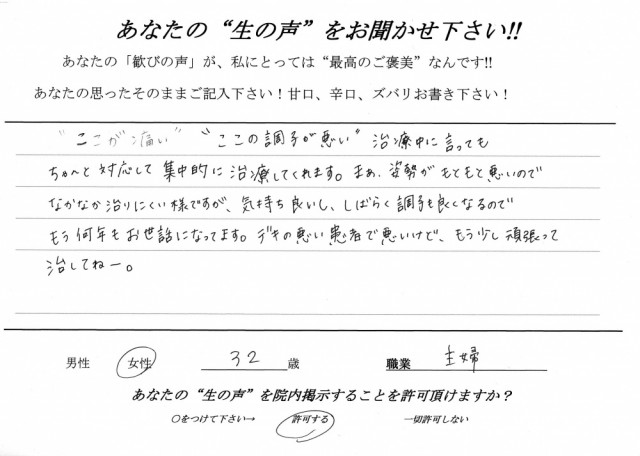 あなたの“生の声”をお聞かせ下さい!!
あなたの「歓びの声」が、私にとっては“最高のご褒美”なんです!!
あなたの思ったそのままご記入下さい！甘口、辛口、ズバリお書き下さい！
“ここが痛い” “ここの調子が悪い” 治療中に言っても
ちゃ〜と対応して集中的に治療してくれます。まぁ、姿勢がもともと悪いので
なかなか治りにくい様ですが、気持ち良いし、しばらく調子も良くなるので
もう何年もお世話になってます。デキの悪い患者で悪いけど、もう少し頑張って
治してねー。
男性 女性 32 歳 職業 主婦
あなたの“生の声”を院内掲示することを許可頂けますか？
○をつけて下さい→ 許可する 一切許可しない